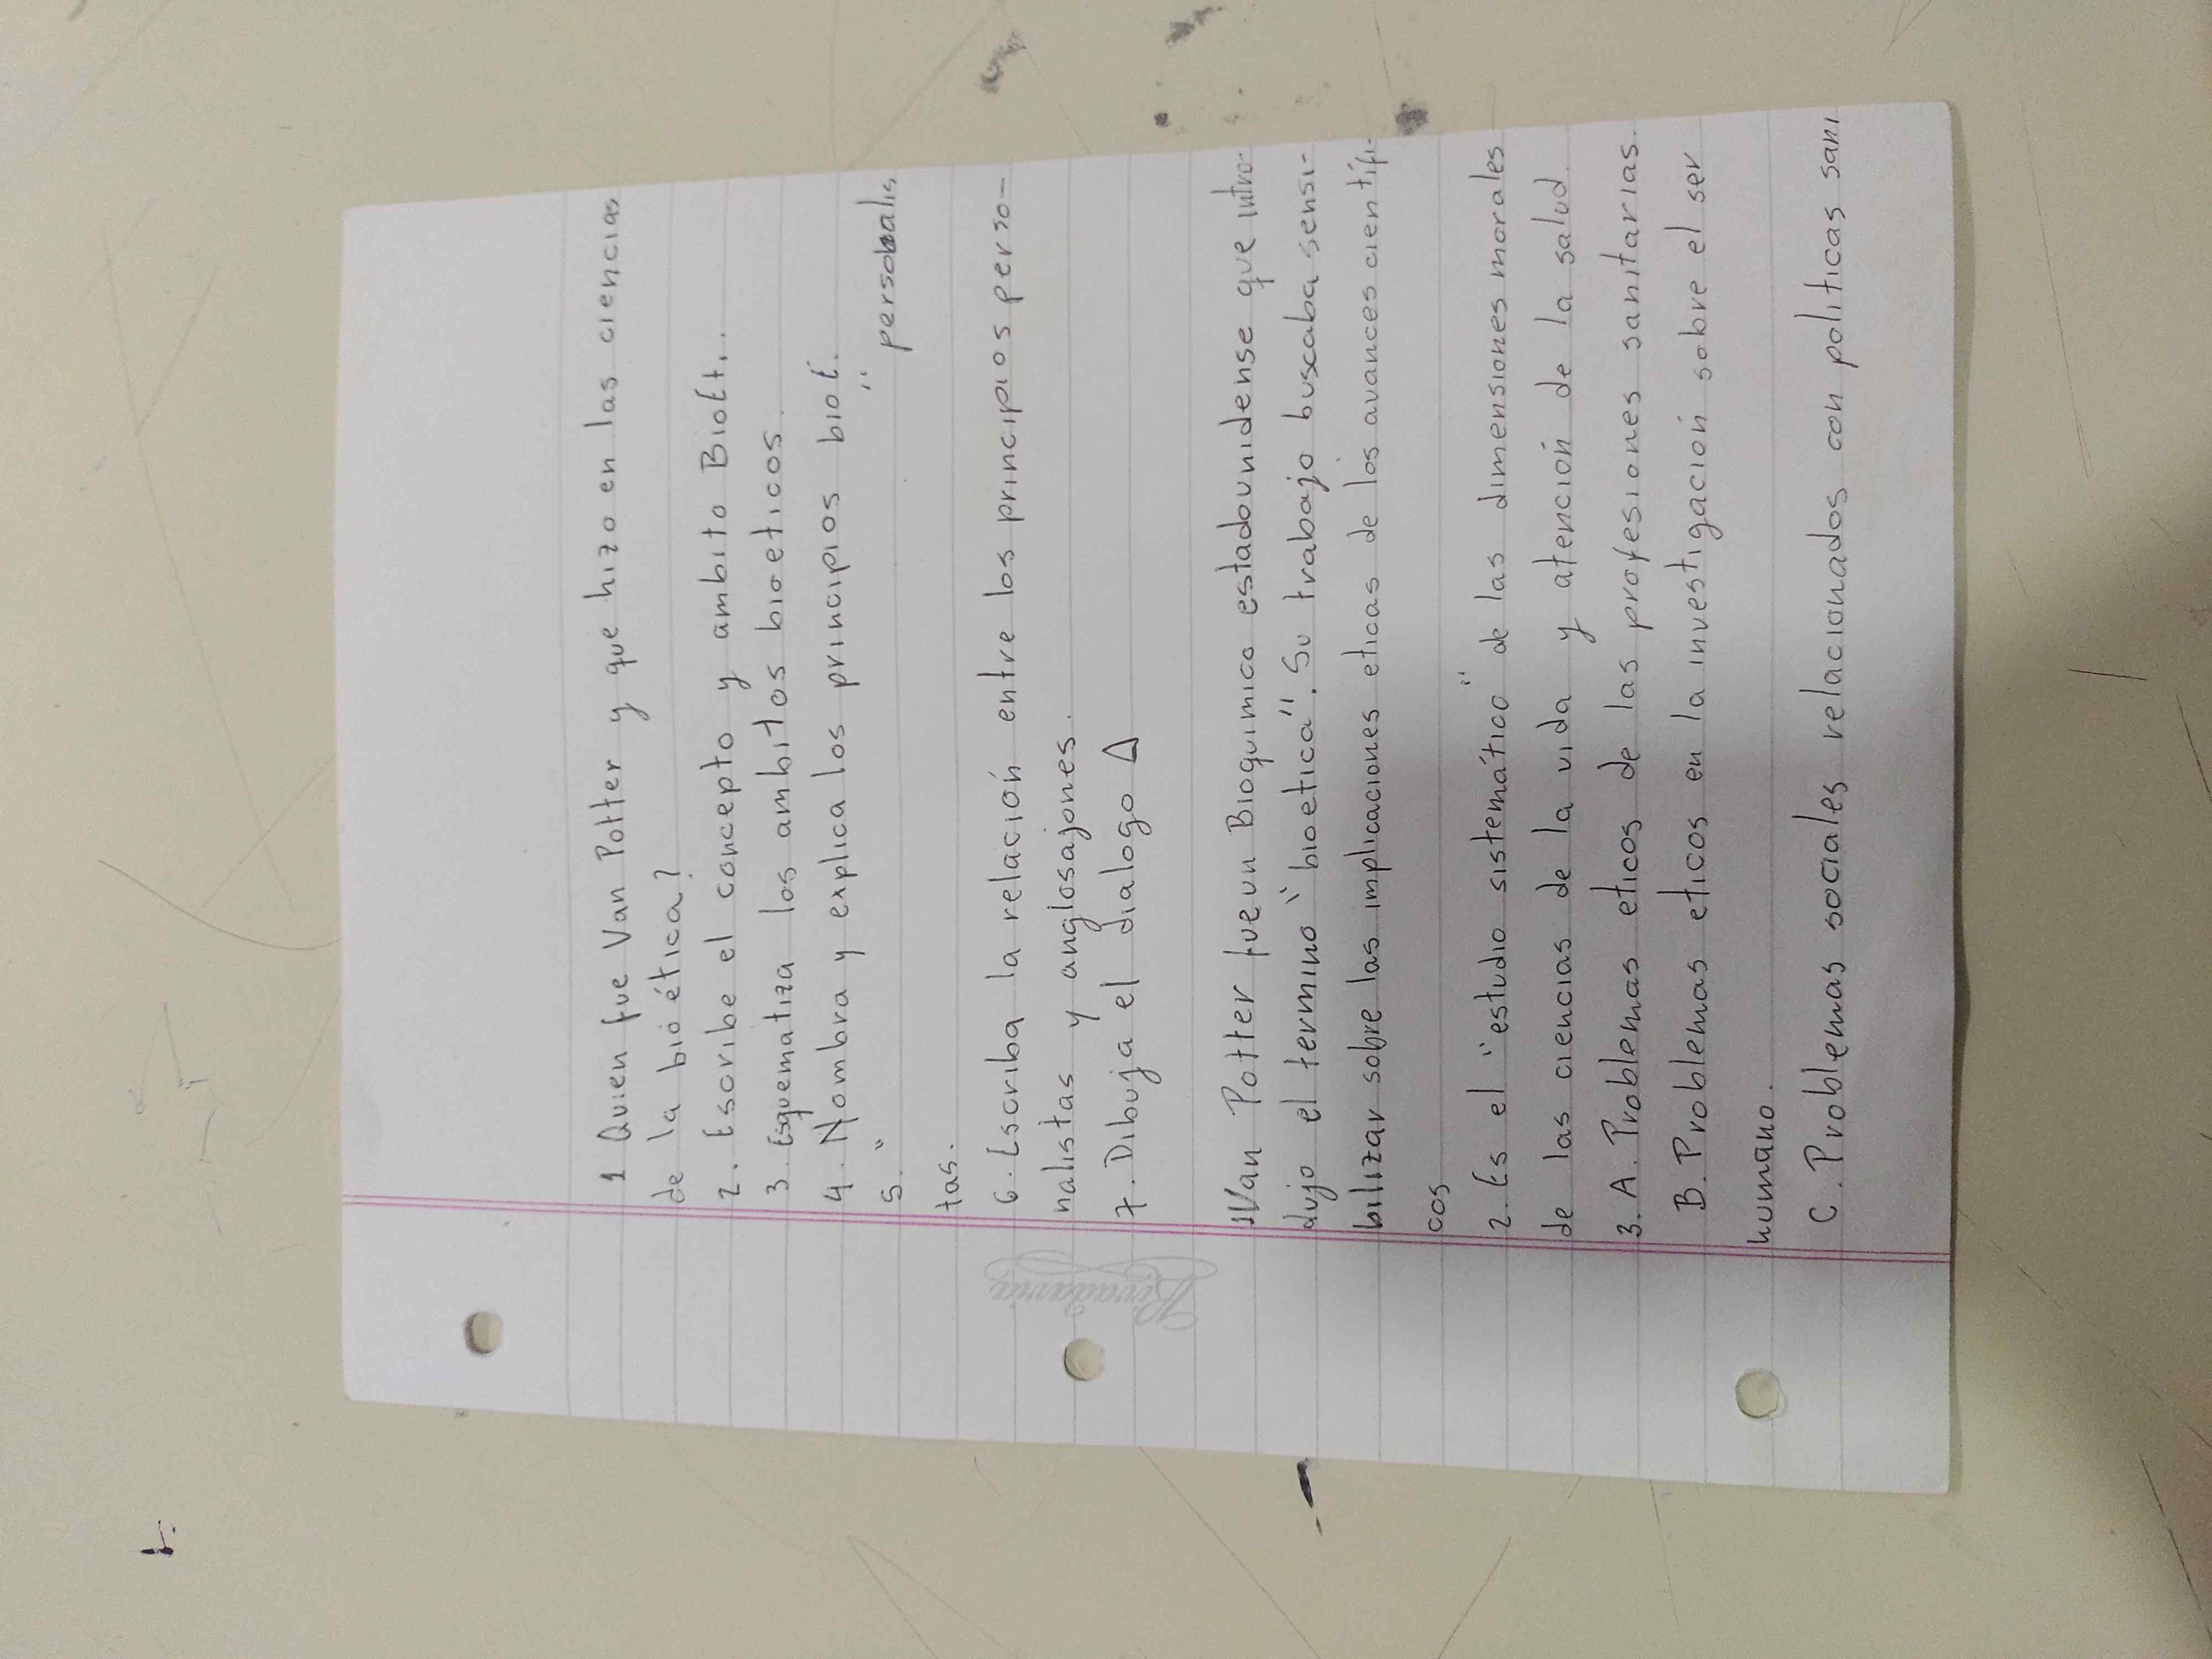 1 Quien fue Van Potter y que hizo en las ciencias
de la bioética?
2. Escribe el concepto y ambito Bioéti..
3. Esquematiza los ambitos bioeticos.
4. Nombra y explica los principios bioé.
5. " " personalis
tas.
6. Escriba la relación entre los principios perso-
nalistas y anglosajones.
7. Dibuja el dialogo Δ
1Van Potter fue un Bioquimico estadounidense que intro-
dujo el termino "bioetica". Su trabajo buscaba sensi-
bilizar sobre las implicaciones eticas de los avances cientifi-
cos
2. Es el "estudio sistemático" de las dimensiones morales
de las ciencias de la vida y atención de la salud.
3. A. Problemas eticos de las profesiones sanitarias.
B. Problemas eticos en la investigación sobre el ser
humano.
C. Problemas sociales relacionados con politicas sani
Rivadavia